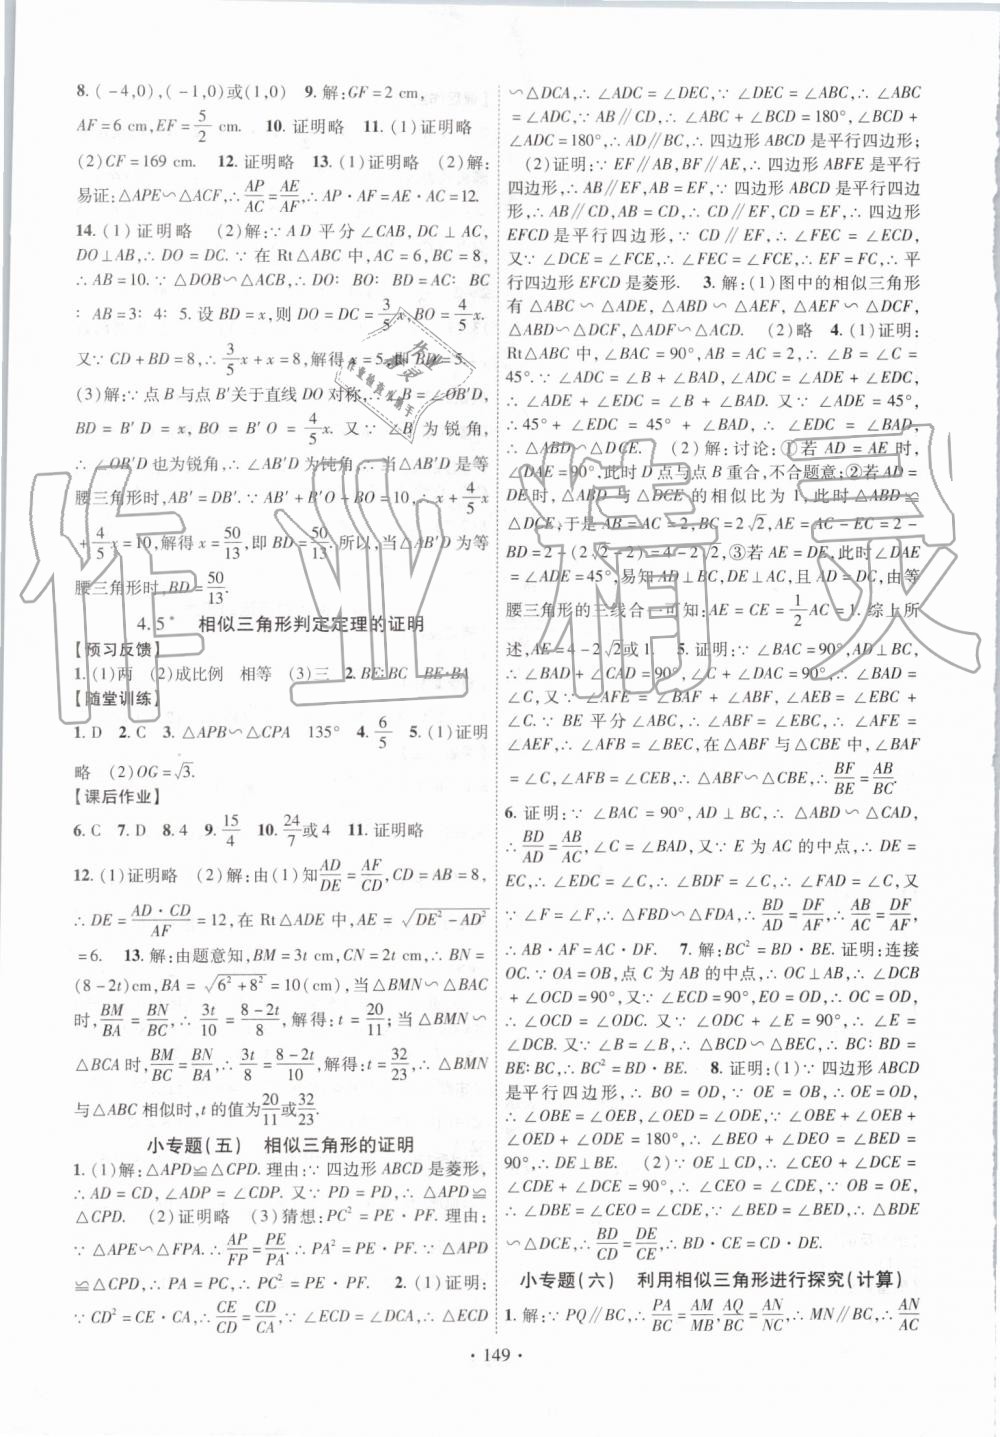 8. (-4,0),(-1,0)或(1,0)　9. 解:GF=2 cm,
AF=6 cm,EF=5/2 cm.　10. 证明略　11. (1)证明略
(2)CF=169 cm.　12. 证明略　13. (1)证明略　(2)解:
易证:△APE∽△ACF,∴AP/AC=AE/AF,∴AP·AF=AC·AE=12.
14. (1)证明略　(2)解:∵AD平分∠CAB,DC⊥AC,
DO⊥AB,∴DO=DC.∵在Rt△ABC中,AC=6,BC=8,
∴AB=10.∵△DOB∽△ACB,∴DO∶BO∶BD=AC∶BC
∶AB=3∶4∶5.设BD=x,则DO=DC=3/5x,BO=4/5x.
又∵CD+BD=8,∴3/5x+x=8,解得x=5,即BD=5.
(3)解:∵点B与点B′关于直线DO对称,∴∠B=∠OB′D,
BD=B′D=x,BO=B′O=4/5x.又∵∠B为锐角,
∴∠OB′D也为锐角,∴∠AB′D为钝角,∴当△AB′D是等
腰三角形时,AB′=DB′.∵AB′+B′O+BO=10,∴x+4/5x
+4/5x=10,解得x=50/13,即BD=50/13.所以,当△AB′D为等
腰三角形时,BD=50/13.
4.5*　相似三角形判定定理的证明
【预习反馈】
1. (1)两　(2)成比例　相等　(3)三　2. BE∶BC　BE·BA
【随堂训练】
1. D　2. C　3. △APB∽△CPA　135°　4. 6/5　5. (1)证明
略　(2)OG=√3.
【课后作业】
6. C　7. D　8. 4　9. 15/4　10. 24/7或4　11. 证明略
12. (1)证明略　(2)解:由(1)知AD/DE=AF/CD,CD=AB=8,
∴DE=AD·CD/AF=12,在Rt△ADE中,AE=√(DE²-AD²)
=6.　13. 解:由题意知,BM=3t cm,CN=2t cm,∴BN=
(8-2t)cm,BA=√(6²+8²)=10(cm),当△BMN∽△BAC
时,BM/BA=BN/BC,∴3t/10=(8-2t)/8,解得:t=20/11;当△BMN∽
△BCA时,BM/BC=BN/BA,∴3t/8=(8-2t)/10,解得:t=32/23,∴△BMN
与△ABC相似时,t的值为20/11或32/23.
小专题(五)　相似三角形的证明
1. (1)解:△APD≌△CPD.理由:∵四边形ABCD是菱形,
∴AD=CD,∠ADP=∠CDP.又∵PD=PD,∴△APD≌
△CPD.　(2)证明略　(3)猜想:PC²=PE·PF.理由:
∵△APE∽△FPA.∴AP/FP=PE/PA,∴PA²=PE·PF.∵△APD
≌△CPD,∴PA=PC,∴PC²=PE·PF.　2. (1)证明:
∵CD²=CE·CA,∴CE/CD=CD/CA,∵∠ECD=∠DCA,∴△ECD
∽△DCA,∴∠ADC=∠DEC,∵∠DEC=∠ABC,∴∠ABC
=∠ADC,∵AB∥CD,∴∠ABC+∠BCD=180°,∠BCD+
∠ADC=180°,∴AD∥BC,∴四边形ABCD是平行四边形;
(2)证明:∵EF∥AB,BF∥AE,∴四边形ABFE是平行
四边形,∴AB∥EF,AB=EF,∵四边形ABCD是平行四边
形,∴AB∥CD,AB=CD,∴CD∥EF,CD=EF,∴四边形
EFCD是平行四边形,∵CD∥EF,∴∠FEC=∠ECD,
又∵∠DCE=∠FCE,∴∠FEC=∠FCE,∴EF=FC,∴平
行四边形EFCD是菱形.　3. 解:(1)图中的相似三角形
有△ABC∽△ADE,△ABD∽△AEF,△AEF∽△DCF,
△ABD∽△DCF,△ADF∽△ACD.　(2)略　4. (1)证明:
Rt△ABC中,∠BAC=90°,AB=AC=2,∴∠B=∠C=
45°.∵∠ADC=∠B+∠BAD,∠ADC=∠ADE+∠EDC,
∴∠ADE+∠EDC=∠B+∠BAD.又∵∠ADE=45°,
∴45°+∠EDC=45°+∠BAD,∴∠EDC=∠BAD,
∴△ABD∽△DCE.　(2)解:讨论:①若AD=AE时,
∠DAE=90°,此时D点与点B重合,不合题意;②若AD=
DE时,△ABD与△DCE的相似比为1,此时△ABD≌
△DCE,于是AB=AC=2,BC=2√2,AE=AC-EC=2-
BD=2-(2√2-2)=4-2√2,③若AE=DE,此时∠DAE
=∠ADE=45°,易知AD⊥BC,DE⊥AC,且AD=DC,由等
腰三角形的三线合一可知:AE=CE=1/2AC=1.综上所
述,AE=4-2√2或1.　5. 证明:∵AD⊥BC,∴∠ACB
又∵∠AFE=∠BAF+∠ABF,∠AEB=∠EBC+
∠C.∵BE平分∠ABC,∴∠ABF=∠EBC,∴∠AFE=
∠AEF,∴∠AFB=∠BEC,在△ABF与△CBE中,∠BAF
=∠C,∠AFB=∠CEB,∴△ABF∽△CBE,∴BF/BE=AB/BC.
6. 证明:∵∠BAC=90°,AD⊥BC,∴△ABD∽△CAD,
∴BD/AD=AB/AC,∠C=∠BAD,又∵E为AC的中点,∴DE=
EC,∴∠EDC=∠C,∴∠BDF=∠C,∴∠FAD=∠C,又
∵∠F=∠F,∴△FBD∽△FDA,∴BD/AD=DF/AF,∴AB/AC=DF/AF,
∴AB·AF=AC·DF.　7. 解:BC²=BD·BE.证明:连接
OC.∵OA=OB,点C为AB的中点,∴OC⊥AB,∴∠DCB
+∠OCD=90°,又∵∠EOD=90°,EO=OD,∴OC=OD,
∴∠OCD=∠ODC.又∵∠ODC+∠E=90°,∴∠E=
∠DCB.又∵∠B=∠B,∴△BCD∽△BEC,∴BC∶BD=
BE∶BC,∴BC²=BD·BE.　8. 证明:(1)∵四边形ABCD
是平行四边形,∴BO=OD,∵OE=OB,∴OE=OD,
∴∠OBE=∠OEB,∠OED=∠ODE,∵∠OBE+∠OEB+
∠OED+∠ODE=180°,∴∠BEO+∠DEO=∠BED=
90°,∴DE⊥BE.　(2)∵OE⊥CD,∴∠CEO+∠DCE
=∠CDE+∠DCE=90°,∴∠CEO=∠CDE,∵OB=OE,
∴∠DBE=∠CEO=∠CDE,∵∠BED=∠DEC,∴△BDE
∽△DCE,∴BD/CD=DE/CE,∴BD·CE=CD·DE.
小专题(六)　利用相似三角形进行探究(计算)
1. 解:∵PQ∥BC,∴PA/BC=AM/MB,AQ/BC=AN/NC,∴MN∥BC,∴AN/AC
·149·
作业精灵
作业精灵
作业检查小助手